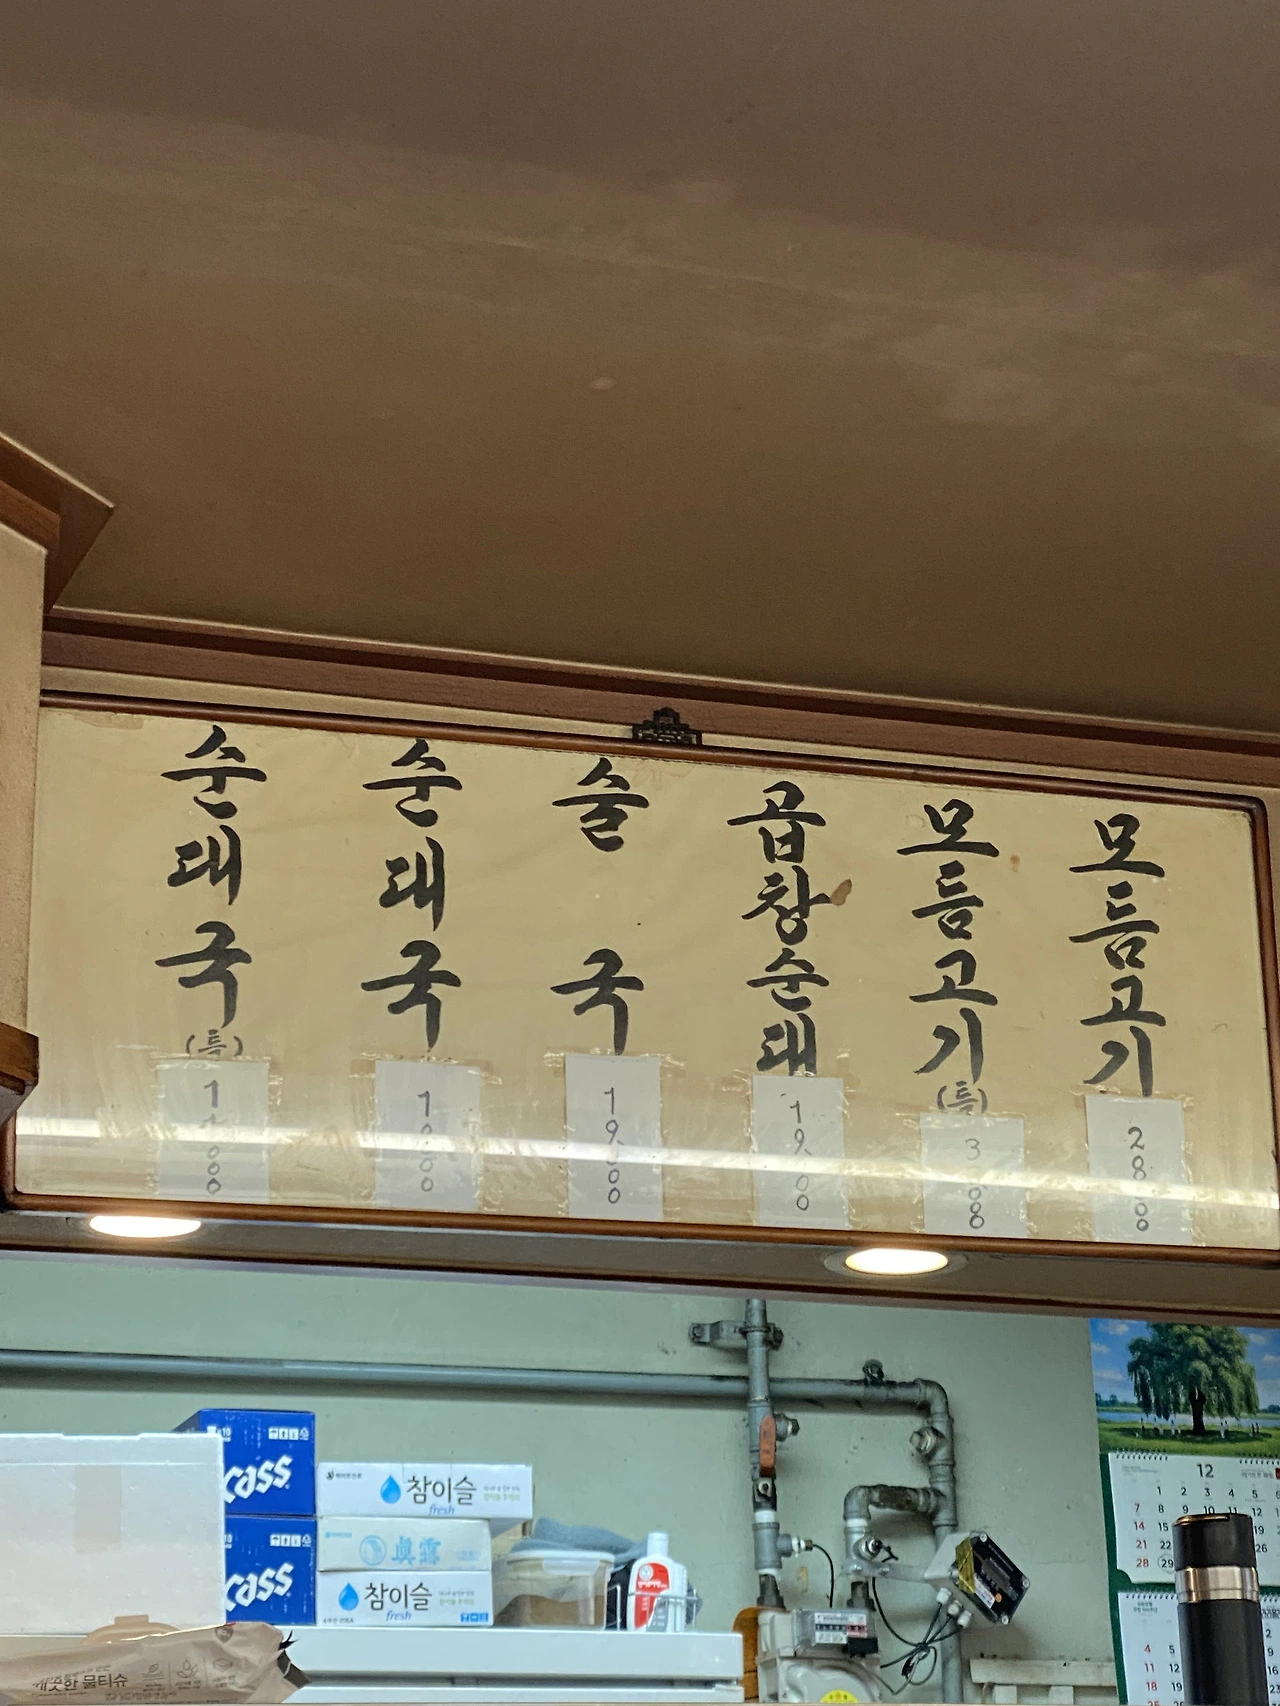 순대국
(특)
순대국
10000
술국
19000
곱창순대
19000
모듬고기
(특)
모듬고기
28000
cass
참이슬
fresh
眞露
cass
참이슬
fresh
깨끗한 물티슈
12
1 2 3 4 5
7 8 9 10 11 12
14 15
21 22 26
28 29
4
11
18
25
2
9
16